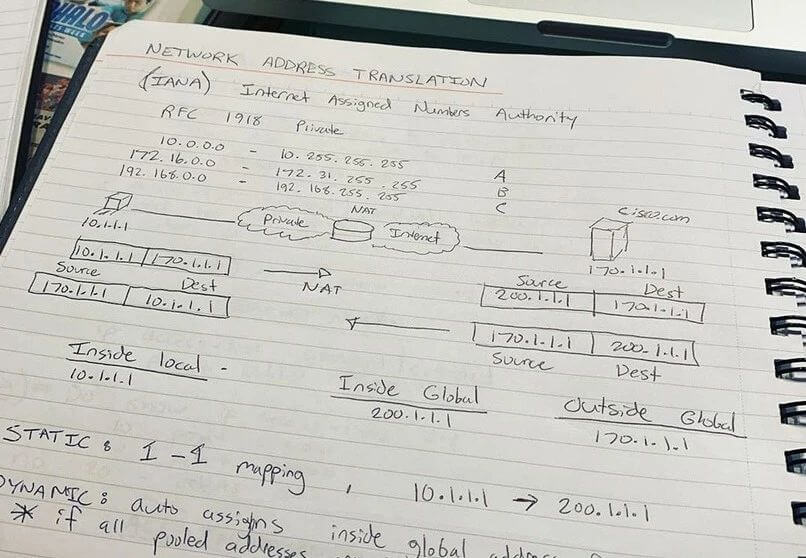 HALO
NETWORK ADDRESS TRANSLATION
(IANA) Internet Assigned Numbers Authority
RFC 1918 Private
10.0.0.0 - 10.255.255.255 A
172.16.0.0 - 172.31.255.255 B
192.168.0.0 - 192.168.255.255 C
NAT
Private Internet
10.1.1.1
170.1.1.1
10.1.1.1 170.1.1.1
Source Dest
170.1.1.1 10.1.1.1
NAT
Source Dest
200.1.1.1 170.1.1.1
170.1.1.1 200.1.1.1
Source Dest
Inside local -
10.1.1.1
Inside Global
200.1.1.1
Outside Global
170.1.1.1
STATIC: 1-1 mapping, 10.1.1.1 → 200.1.1.1
DYNAMIC: auto assigns inside global
* if all pooled addresses